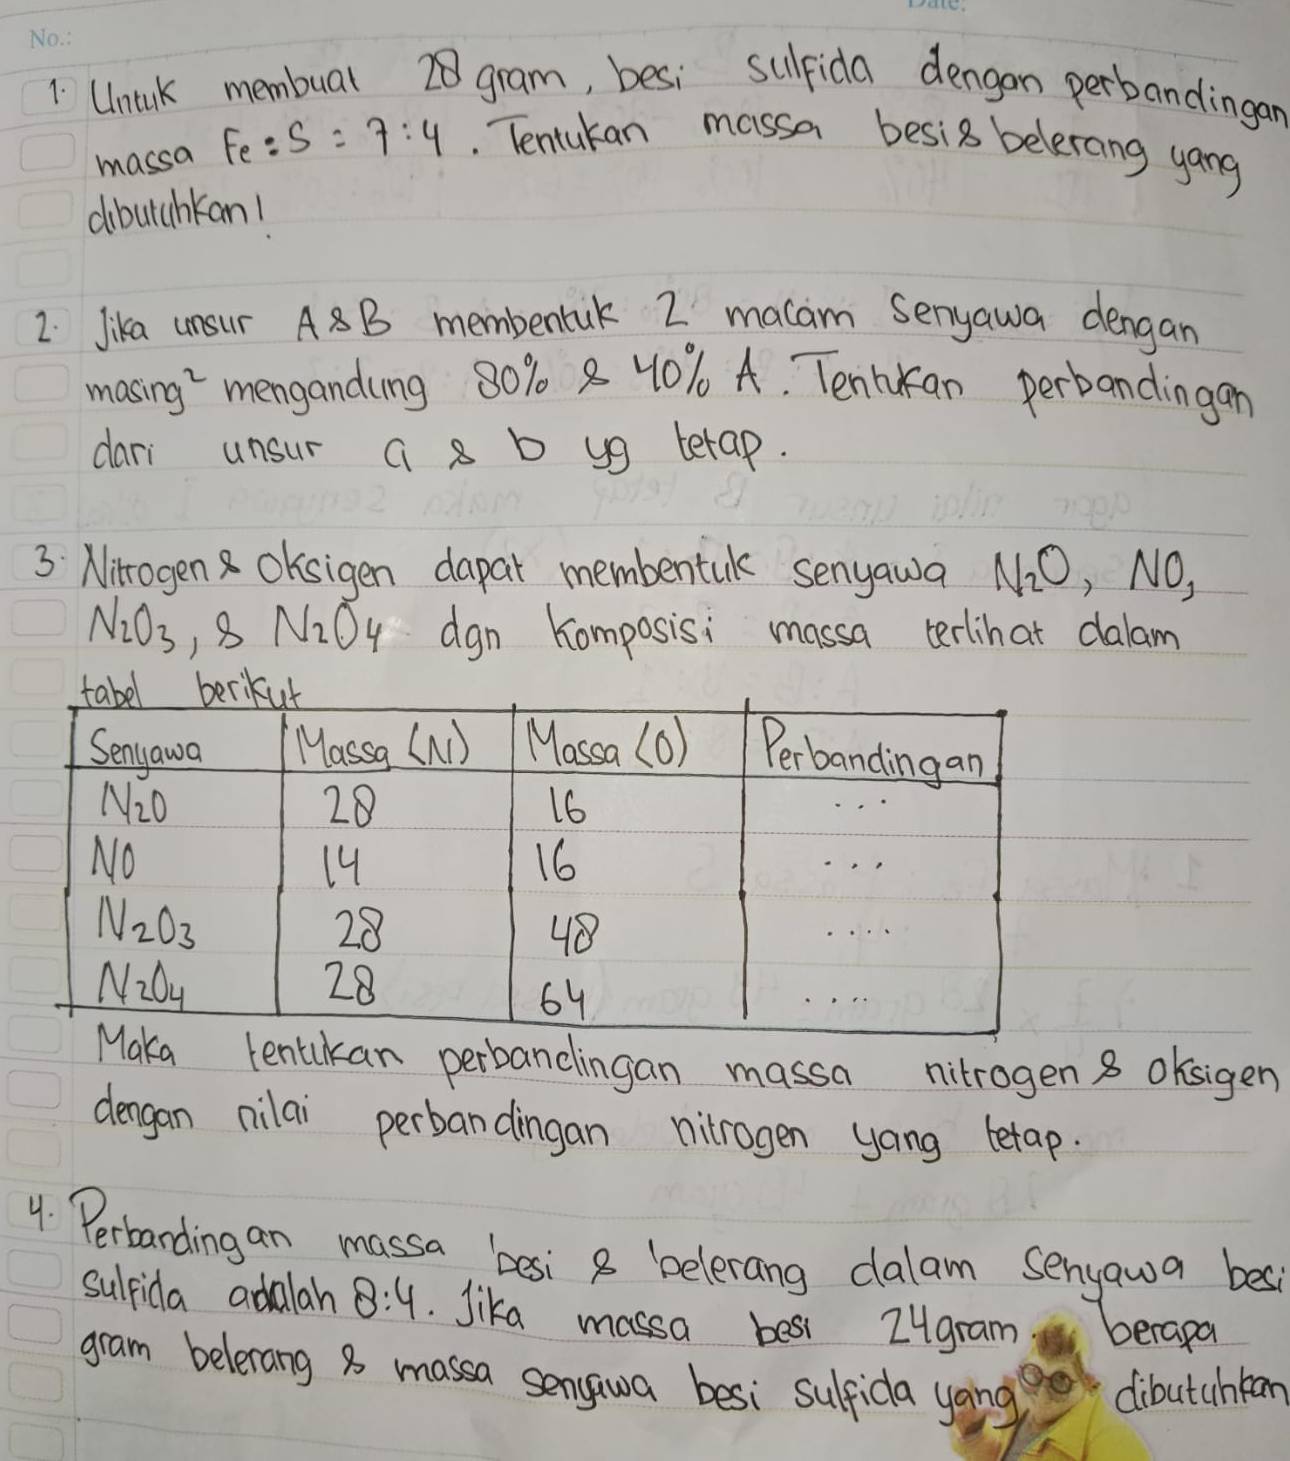 Date:
No.:
1. Untuk membuat 28 gram, besi sulfida dengan perbandingan
massa Fe : S = 7 : 4. Tentukan massa besi & belerang yang
dibutuhkan!
2. Jika unsur A & B membentuk 2 macam senyawa dengan
masing² mengandung 80% & 40% A. Tentukan perbandingan
dari unsur a & b yg tetap.
3. Nitrogen & Oksigen dapat membentuk senyawa N₂O, NO,
N₂O₃, & N₂O₄ dgn komposisi massa terlihat dalam
tabel berikut
Senyawa Massa (N) Massa (O) Perbandingan
N₂O 28 16 ...
NO 14 16 ...
N₂O₃ 28 48 ....
N₂O₄ 28 64 ....
Maka tentukan perbandingan massa nitrogen & oksigen
dengan nilai perbandingan nitrogen yang tetap.
4. Perbandingan massa besi & belerang dalam senyawa besi
sulfida adalah 8:4. Jika massa besi 24gram. berapa
gram belerang & massa senyawa besi sulfida yang dibutuhkan